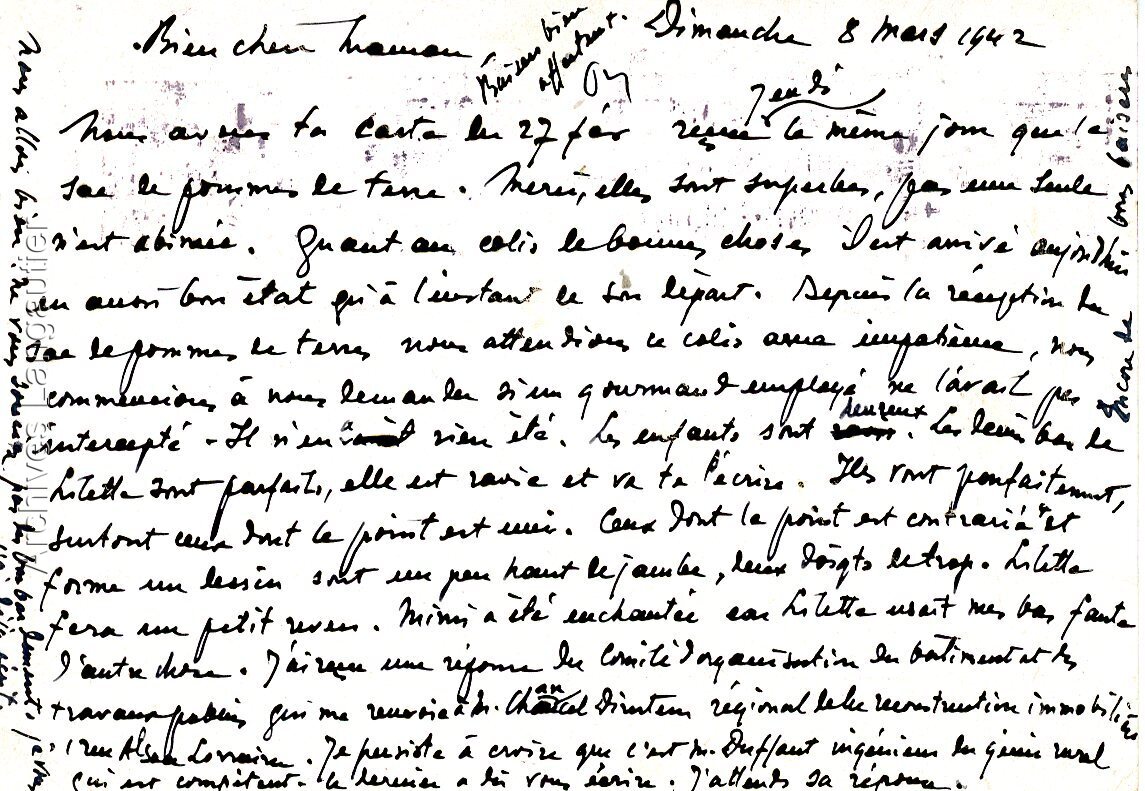 Dimanche 8 mars 1942
Bien chère maman,
Baisers bien
affectueux.
Nous avons ta carte du 27 fév reçue jeudi le même jour que le
sac de pommes de terre. Merci, elles sont superbes, pas une seule
n'est abimée. Quant au colis de bonnes choses il est arrivé aujourd'hui
en aussi bon état qu'à l'instant de son départ. Depuis la réception du
sac de pommes de terre nous attendions ce colis avec impatience, nous
commencions à nous demander si un gourmand employé ne l'avait pas
intercepté - Il n'en a rien été. Les enfants sont heureux. Les demi bas de
Lilette sont parfaits, elle est ravie et va te l'écrire. Ils vont parfaitement,
surtout ceux dont le point est uni. Ceux dont le point est contrarié et
forme un dessin sont un peu haut de jambe, deux doigts de trop. Lilette
fera un petit revers. Mimi a été enchantée car Lilette usait mes bas faute
d'autre chose. J'ai reçu une réponse du Comité d'organisation du bâtiment et des
travaux publics qui me renvoie à M. Directeur régional de la reconstruction immobilière
1 rue Alsace Lorraine. Je persiste à croire que c'est M. Duffaut ingénieur du génie rural
qui est compétent - ce dernier a dû vous écrire. J'attends sa réponse.
Encore de bons baisers
Nous allons bien. Ne vous souciez pas
Archives Langautier